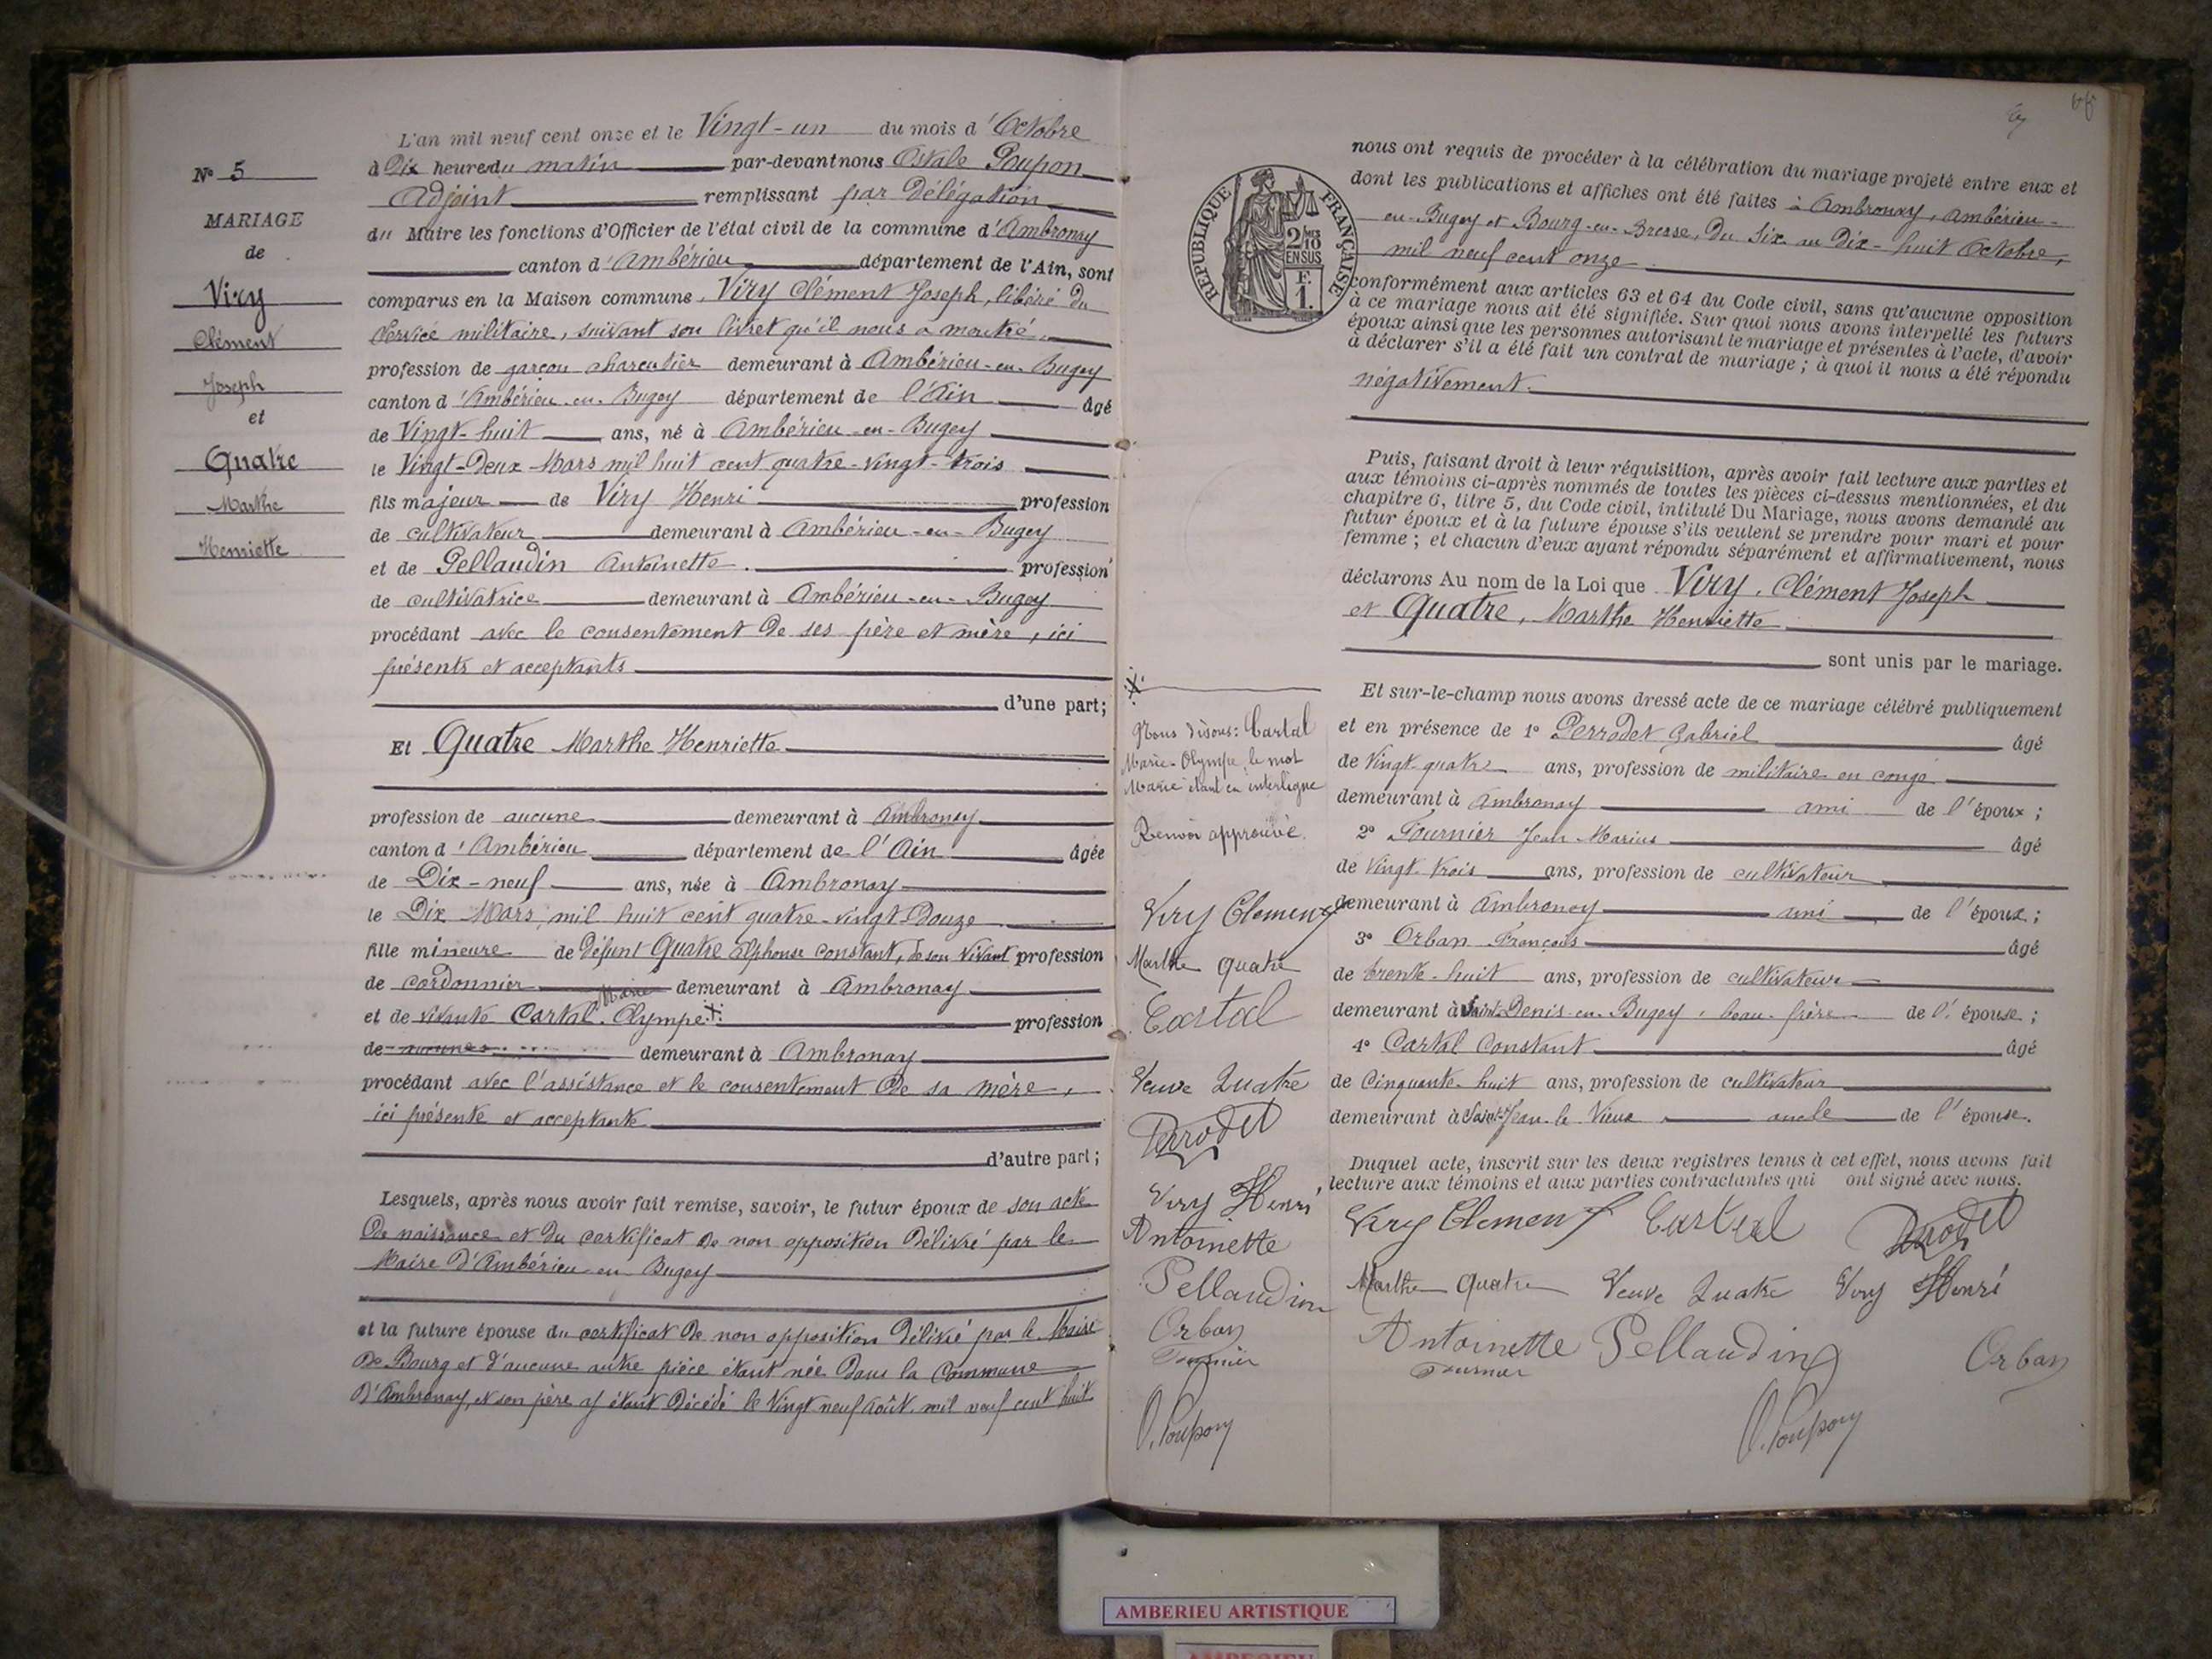 N° 5
MARIAGE
de
Viry
Clément
Joseph
et
Quatre
Marthe
Henriette
L'an mil neuf cent onze et le Vingt-un du mois d'Octobre
à Dix heures du matin par-devant nous Poupon
Adjoint remplissant par Délégation
du Maire les fonctions d'Officier de l'état civil de la commune d'Ambronay
canton d'Ambérieu département de l'Ain, sont
comparus en la Maison commune, Viry Clément Joseph, libéré du
Service militaire, suivant son livret qu'il nous a montré,
profession de garçon charcutier demeurant à Ambérieu-en-Bugey
canton d'Ambérieu-en-Bugey département de l'Ain âgé
de Vingt-huit ans, né à Ambérieu-en-Bugey
le Vingt-Deux Mars mil huit cent quatre-vingt-trois
fils majeur de Viry Henri profession
de cultivateur demeurant à Ambérieu-en-Bugey
et de Pellaudin Antoinette. profession
de cultivatrice demeurant à Ambérieu-en-Bugey
procédant avec le consentement de ses père et mère, ici
présents et acceptants
d'une part;
Et Quatre Marthe Henriette
profession de aucune demeurant à Ambronay
canton d'Ambérieu département de l'Ain âgée
de Dix-neuf ans, née à Ambronay
le Dix Mars, mil huit cent quatre-vingt-Douze
fille mineure de Défunt Quatre Alphonse Constant, de son vivant profession
de cordonnier demeurant à Ambronay
et de vivante Cartal Marie Olympe profession
de aucune demeurant à Ambronay
procédant avec l'assistance et le consentement de sa mère,
ici présente et acceptante
d'autre part;
Lesquels, après nous avoir fait remise, savoir, le futur époux de son acte
De naissance et du certificat de non opposition Délivré par le
Maire d'Ambérieu-en-Bugey
et la future épouse du certificat de non opposition Délivré par le Maire
De Bourg et d'aucune autre pièce étant née Dans la Commune
D'Ambronay, et son père y étant Décédé le Vingt neuf Août mil neuf cent huit
RÉPUBLIQUE FRANÇAISE
2/10 MES
EN SUS
F.
1.
nous ont requis de procéder à la célébration du mariage projeté entre eux et
dont les publications et affiches ont été faites à Ambronay, Ambérieu-
en-Bugey et Bourg-en-Bresse, Du Six au Dix-huit Octobre,
mil neuf cent onze
conformément aux articles 63 et 64 du Code civil, sans qu'aucune opposition
à ce mariage nous ait été signifiée. Sur quoi nous avons interpellé les futurs
époux ainsi que les personnes autorisant le mariage et présentes à l'acte, d'avoir
à déclarer s'il a été fait un contrat de mariage; à quoi il nous a été répondu
négativement.
Puis, faisant droit à leur réquisition, après avoir fait lecture aux parties et
aux témoins ci-après nommés de toutes les pièces ci-dessus mentionnées, et du
chapitre 6, titre 5, du Code civil, intitulé Du Mariage, nous avons demandé au
futur époux et à la future épouse s'ils veulent se prendre pour mari et pour
femme; et chacun d'eux ayant répondu séparément et affirmativement, nous
déclarons Au nom de la Loi que Viry, Clément Joseph
et Quatre, Marthe Henriette
sont unis par le mariage.
Et sur-le-champ nous avons dressé acte de ce mariage célébré publiquement
et en présence de 1° Perrodet Gabriel âgé
de Vingt-quatre ans, profession de militaire en congé
demeurant à Ambronay ami de l'époux;
2° Fournier Jean Marius âgé
de Vingt-trois ans, profession de cultivateur
demeurant à Ambronay ami de l'époux;
3° Orban François âgé
de trente-huit ans, profession de cultivateur
demeurant à Saint-Denis-en-Bugey, beau-frère de l'épouse;
4° Cartal Constant âgé
de Cinquante-huit ans, profession de cultivateur
demeurant à Saint-Jean-le-Vieux oncle de l'épouse.
Duquel acte, inscrit sur les deux registres tenus à cet effet, nous avons fait
lecture aux témoins et aux parties contractantes qui ont signé avec nous.
Viry Clement Cartal Perrodet
Marthe Quatre Veuve Quatre Viry Henri
Antoinette Pellaudin Orban
Fournier
O. Poupon
Nous disons: Cartal
Marie-Olympe, le mot
Marie étant en interligne
Renvoi approuvé.
Viry Clement
Marthe Quatre
Cartal
Veuve Quatre
Perrodet
Viry Henri
Antoinette
Pellaudin
Orban
Fournier
O. Poupon
AMBERIEU ARTISTIQUE
AMBERIEU